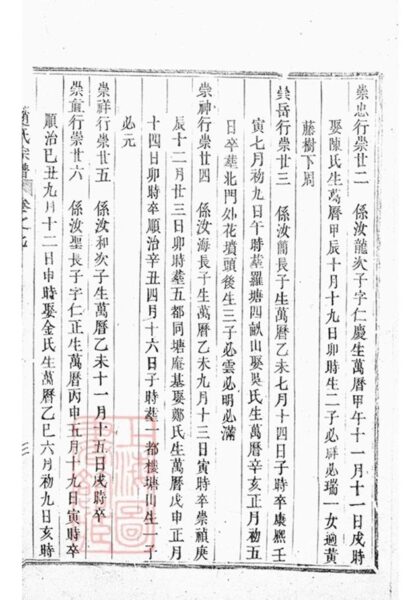 崇忠行崇廿二 係汝龍次子字仁慶生萬曆甲午十一月十一日戌時
娶陳氏生萬曆甲辰十月十九日卯時生二子必麟必瑞一女適黃
藤樹下周
崇岳行崇廿三 係汝蘭長子生萬曆乙未七月十四日子時卒康熙壬
寅七月初九日午時葬羅塘四畝山娶吳氏生萬曆辛亥正月初五
日卒葬北門外花墳頭後生三子必雲必明必滿
崇神行崇廿四 係汝海長子生萬曆乙未九月十三日寅時卒崇禎庚
辰十二月廿三日卯時葬五都同塘庵基娶鄭氏生萬曆戊申正月
十四日卯時卒順治辛丑四月十六日子時葬一都樓塘山生一子
必元
崇祥行崇廿五 係汝和次子生萬曆乙未十一月十五日戌時卒
崇賓行崇廿六 係汝聖長子字仁正生萬曆丙申五月十九日寅時卒
順治己丑九月十二日申時娶金氏生萬曆乙巳六月初九日亥時
趙氏宗譜 卷之九